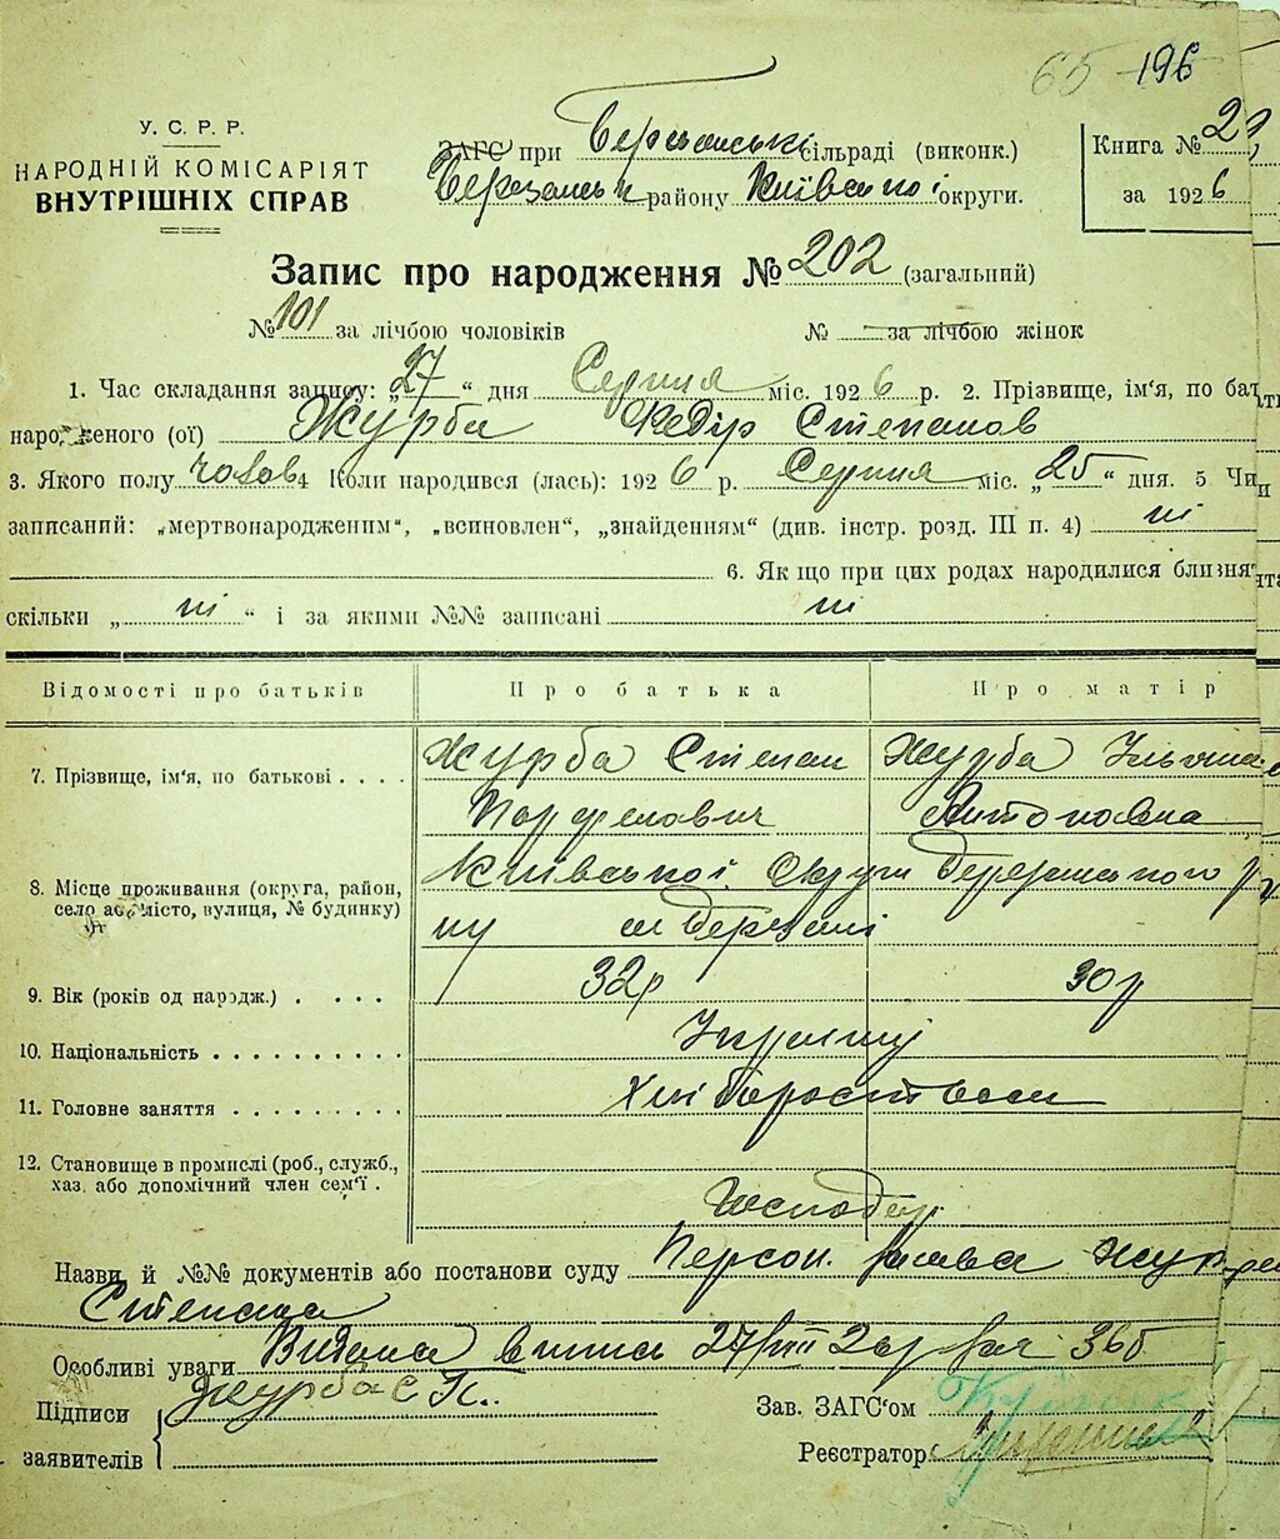 65 196
У. С. Р. Р.
НАРОДНІЙ КОМІСАРІЯТ
ВНУТРІШНІХ СПРАВ
ЗАГС при Березанські сільраді (виконк.)
Березанськ району Київської округи.
Книга № 2
за 1926
Запис про народження № 202 (загальний)
№ 101 за лічбою чоловіків № — за лічбою жінок
1. Час складання запису: „27“ дня Серпня міс. 1926 р. 2. Прізвище, ім‘я, по бат
народженого (ої) Журба Федір Степанов
3. Якого полу чолов. 4 Коли народився (лась): 1926 р. Серпня міс. „25“ дня. 5 Чи
записаний: „мертвонародженим“, „всиновлен“, „знайденням“ (див. інстр. розд. III п. 4) ні
6. Якщо при цих родах народилися близнята
скільки „ні“ і за якими №№ записані ні
Відомості про батьків Про батька Про матір
7. Прізвище, ім‘я, по батькові . . . . Журба Степан Журба Уляна
Парфенович Антоновна
8. Місце проживання (округа, район, Київської Округи Березанського р
село або місто, вулиця, № будинку)
ну м Березані
9. Вік (років од народж.) . . . . 32р 30р
10. Національність . . . . . . . . . . Українці
11. Головне заняття . . . . . . . . . Хліборобством
12. Становище в промислі (роб., служб.,
хаз. або допомічний член сем‘ї .
Господар
Назви й №№ документів або постанови суду Персон. заява Журби
Степана
Особливі уваги Видана випись 27/VIII 26р за № 366
Підписи Журба С П. Зав. ЗАГС‘ом
заявителів Реєстратор